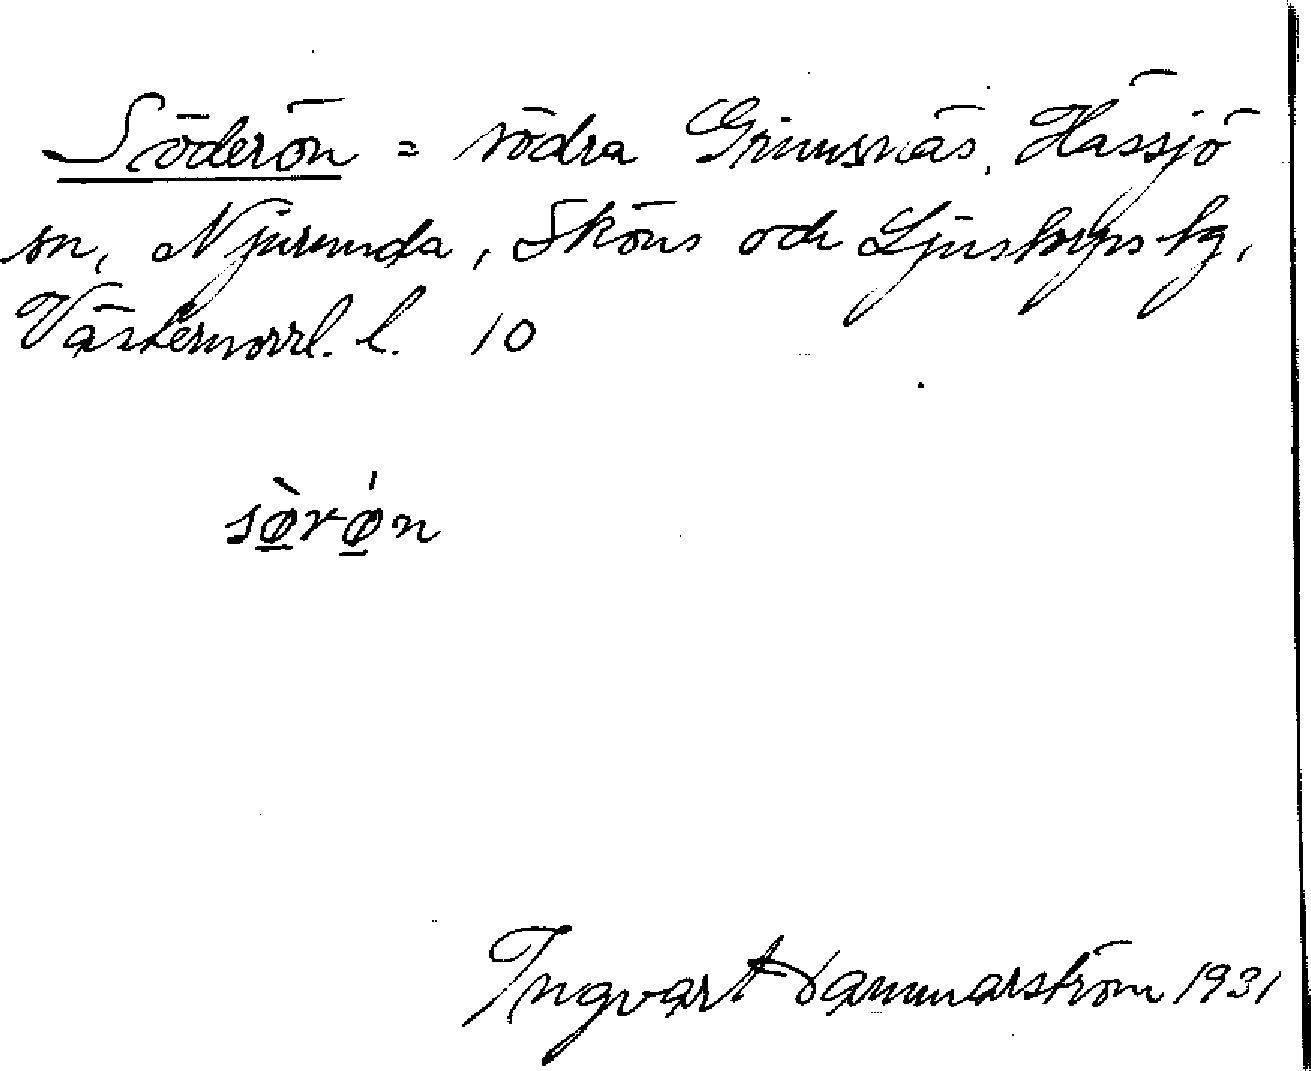 Söderön = södra Grimsnäs, Hässjö
sn, Njurunda, Sköns och Ljustorps tg,
Västernorrl. l. 10
sø̀rǿn
Ingvart 1931